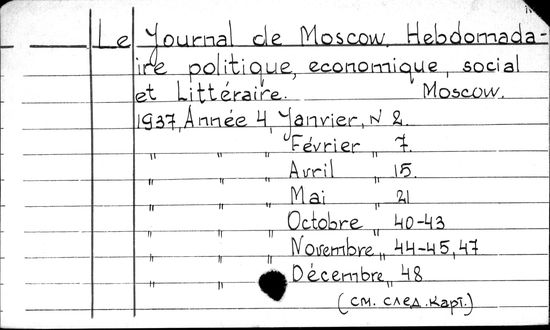 Le Journal de Moscow. Hebdomada-
ire politique, economique, social
et Littéraire. Moscow.
1937, Année 4, Janvier, N 2.
" " " Février " 7.
" " " Avril " 15.
" " " Mai " 21
" " " Octobre " 40-43
" " " Novembre " 44-45, 47
" " Décembre " 48
(см. след. карт.)